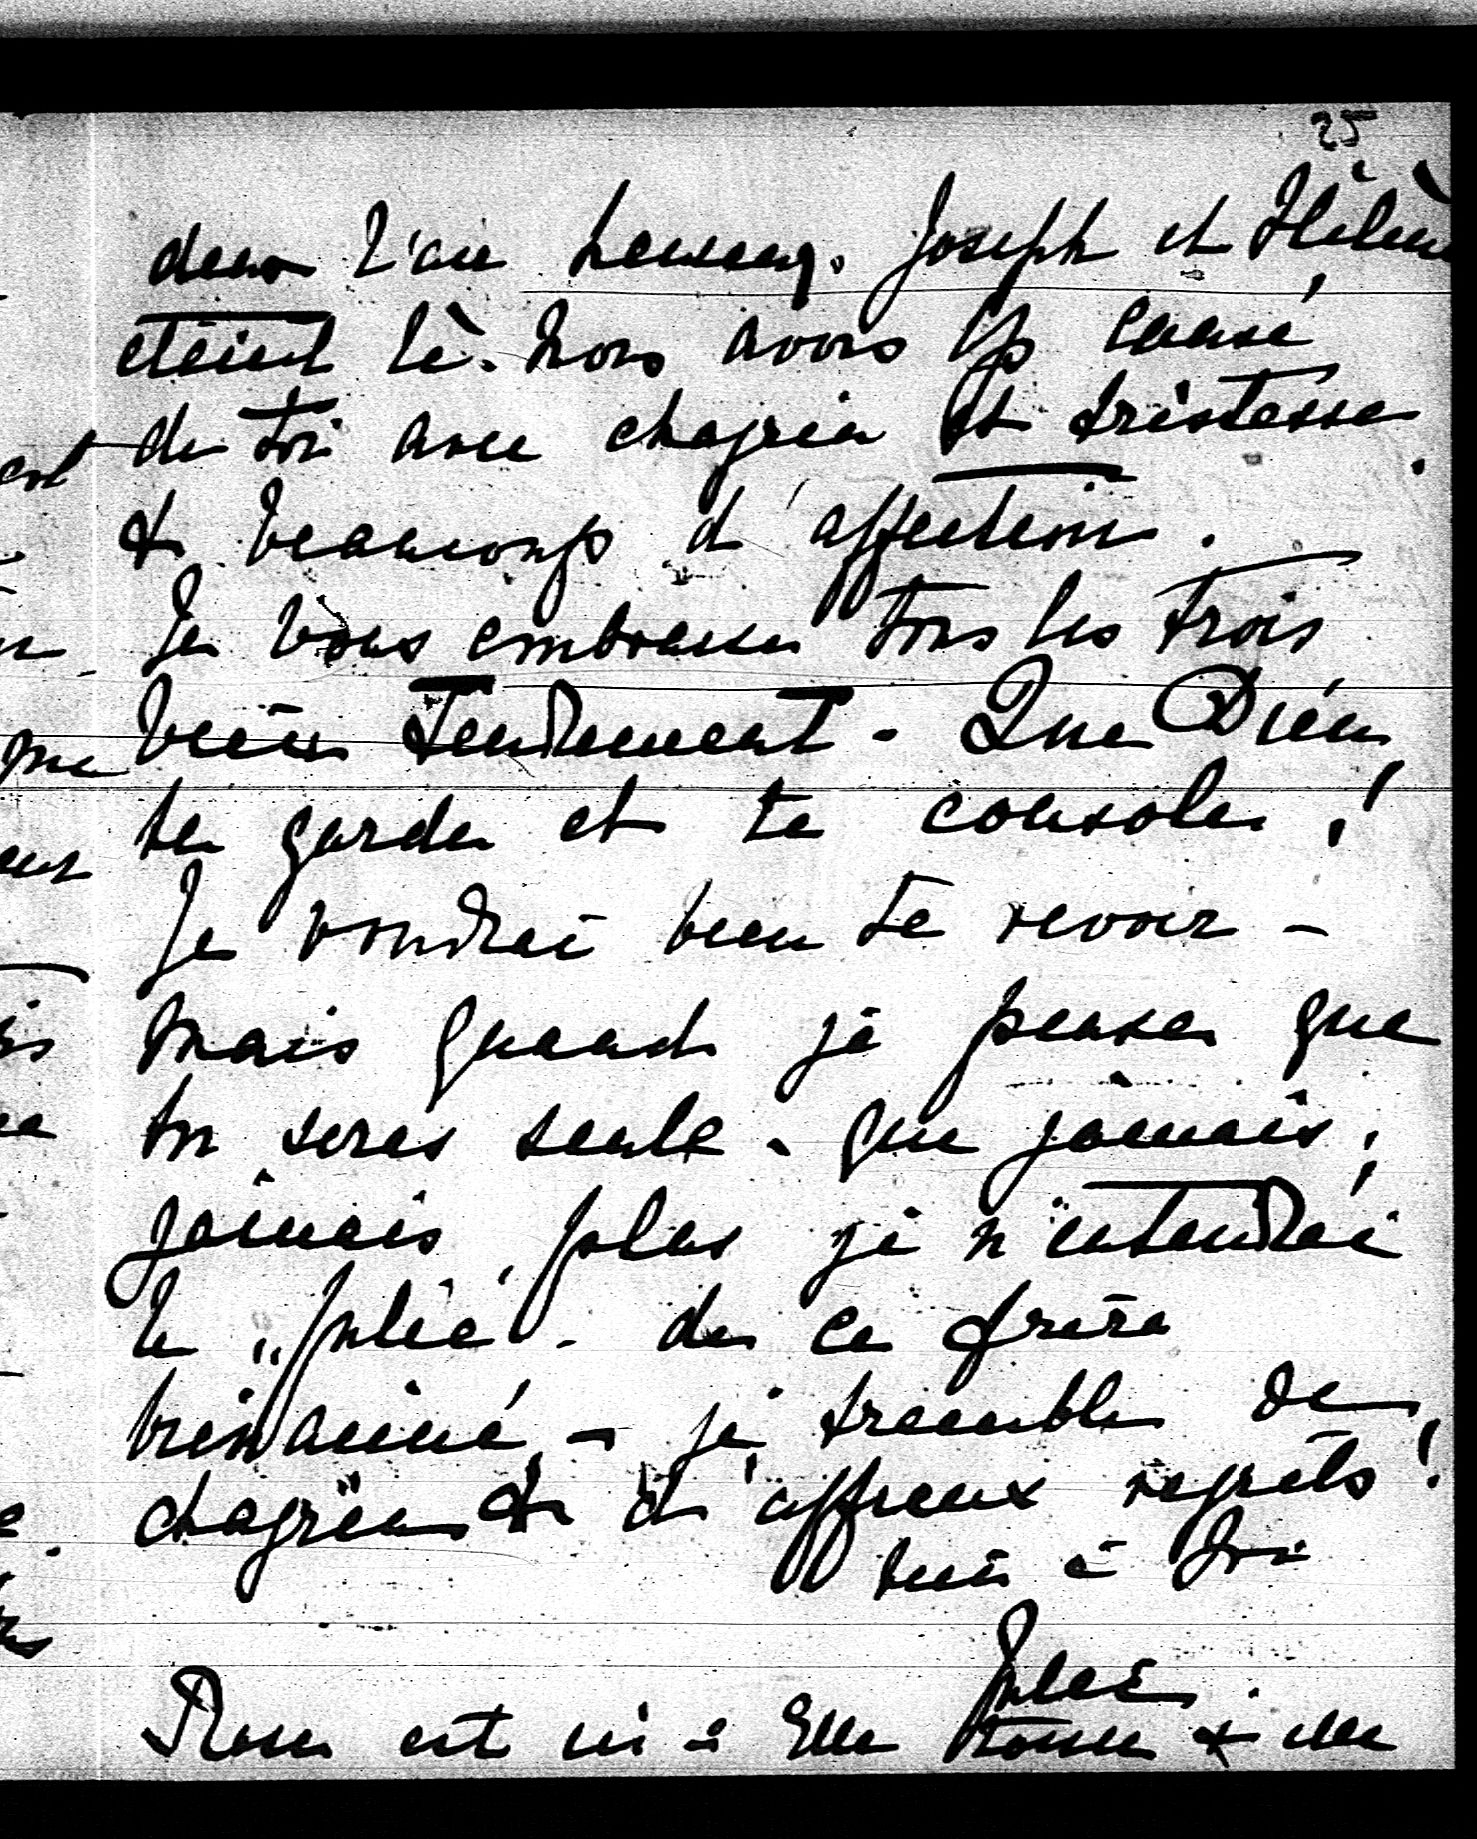 25
dans l'air Joseph et Hélène
étaient là. Nous avons causé
de toi avec chagrin et tristesse
& beaucoup d'affection.
Je vous embrasse tous les trois
bien tendrement - Que Dieu
te garde et te console!
Je voudrai bien te revoir -
mais quand je pense que
tu seras seule - que jamais,
jamais plus je n'entendrai
le "Julie" - de ce frère
bien aimé, - je tremble de
chagrin & d'affreux regrets!
à toi
Julie.
Rose est ici - Elle tousse & elle